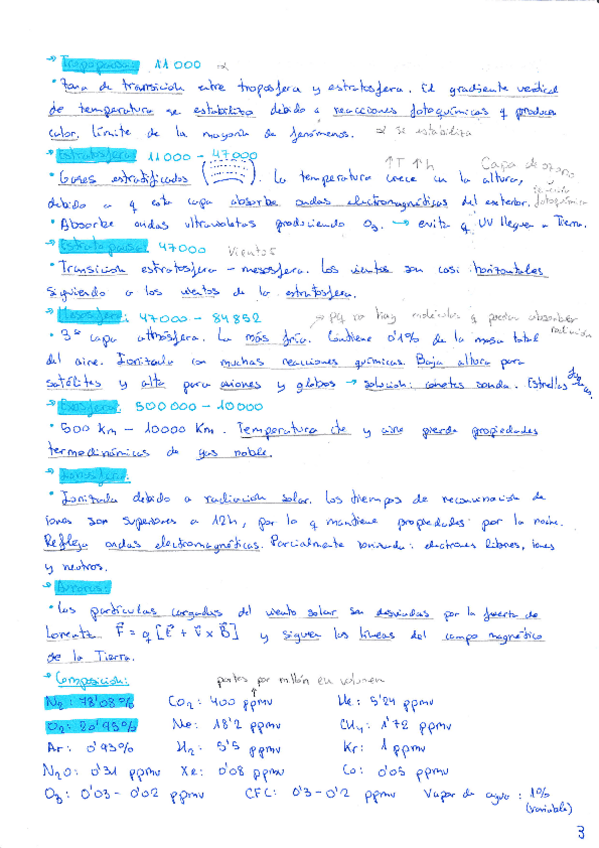 → Tropopausa: 11000 α
• Zona de transición entre troposfera y estratosfera. El gradiente vertical
de temperatura se estabiliza debido a reacciones fotoquímicas q producen
calor. Límite de la mayoría de fenómenos. α se estabiliza
→ Estratosfera: 11000 - 47000 ↑T ↑h Capa de ozono
• Gases estratificados. La temperatura crece con la altura,
debido a q esta capa absorbe ondas electromagnéticas del exterior. fotoquímica
• Absorbe ondas ultravioletas produciendo O3. → evita q UV lleguen a Tierra.
→ Estratopausa: 47000 Vientos
• Transición estratosfera - mesosfera. Los vientos son casi horizontales
siguiendo a los vientos de la estratosfera.
→ Mesosfera: 47000 - 84852 → Pq no hay moléculas q puedan absorber radiación
• 3ª capa atmósfera. La más fría. Contiene 0'1% de la masa total
del aire. Ionizada con muchas reacciones químicas. Baja altura para
satélites y alta para aviones y globos → solución: cohetes sonda. Estrellas fugaces.
→ Exosfera: 500000 - 10000
• 500 Km - 10000 Km. Temperatura cte y aire pierde propiedades
termodinámicas de gas noble.
→ Ionosfera:
• Ionizada debido a radiación solar. Los tiempos de recombinación de
iones son superiores a 12h, por lo q mantiene propiedades por la noche.
Refleja ondas electromagnéticas. Parcialmente ionizada: electrones libres, iones
y neutros.
→ Auroras:
• Las partículas cargadas del viento solar son desviadas por la fuerza de
Lorentz F⃗ = q [E⃗ + v⃗ x B⃗] y siguen las líneas del campo magnético
de la Tierra.
→ Composición: partes por millón en volumen
N2: 78'08% CO2: 400 ppmv He: 5'24 ppmv
O2: 20'95% Ne: 18'2 ppmv CH4: 1'72 ppmv
Ar: 0'93% H2: 5'5 ppmv Kr: 1 ppmv
N2O: 0'31 ppmv Xe: 0'08 ppmv Co: 0'05 ppmv
O3: 0'03 - 0'02 ppmv CFC: 0'3 - 0'2 ppmv Vapor de agua: 1%
(variable)
3